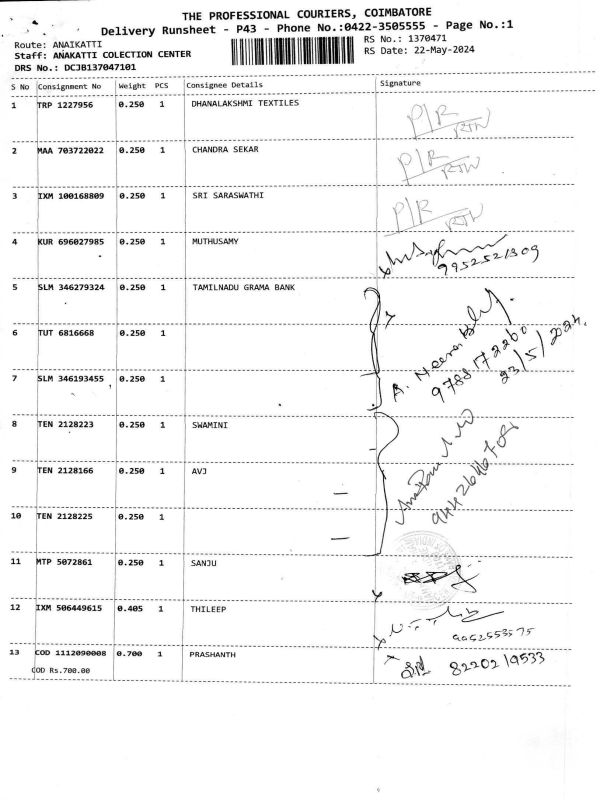 THE PROFESSIONAL COURIERS, COIMBATORE
Delivery Runsheet - P43 - Phone No.:0422-3505555 - Page No.:1
Route: ANAIKATTI
RS No.: 1370471
Staff: ANAKATTI COLECTION CENTER
RS Date: 22-May-2024
DRS No.: DCJB137047101
S No Consignment No Weight PCS Consignee Details Signature
1 TRP 1227956 0.250 1 DHANALAKSHMI TEXTILES
P/R RTN
2 MAA 703722022 0.250 1 CHANDRA SEKAR
P/R RTN
3 IXM 100168809 0.250 1 SRI SARASWATHI
P/R RTN
4 KUR 696027985 0.250 1 MUTHUSAMY
9952521309
5 SLM 346279324 0.250 1 TAMILNADU GRAMA BANK
6 TUT 6816668 0.250 1
9788172260
23/5/2024.
7 SLM 346193455 0.250 1
8 TEN 2128223 0.250 1 SWAMINI
9 TEN 2128166 0.250 1 AVJ
10 TEN 2128225 0.250 1
11 MTP 5072861 0.250 1 SANJU
12 IXM 506449615 0.405 1 THILEEP
13 COD 1112090008 0.700 1 PRASHANTH
8220219533
COD Rs.700.00